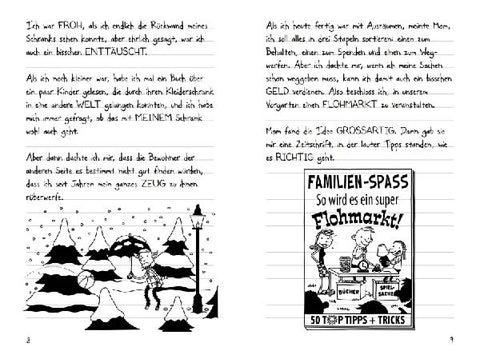 Ich war FROH, als ich endlich die Rückwand meines
Schranks sehen konnte, aber ehrlich gesagt, war ich
auch ein bisschen ENTTÄUSCHT.
Als ich noch kleiner war, habe ich mal ein Buch über
ein paar Kinder gelesen, die durch ihren Kleiderschrank
in eine andere WELT gelangen konnten, und ich habe
mich immer gefragt, ob das mit MEINEM Schrank
wohl auch geht.
Aber dann dachte ich mir, dass die Bewohner der
anderen Seite es bestimmt nicht gut finden würden,
dass ich seit Jahren mein ganzes ZEUG zu ihnen
rüberwerfe.
8
Als ich heute fertig war mit Ausräumen, meinte Mom,
ich soll alles in drei Stapeln sortieren: einen zum
Behalten, einen zum Spenden und einen zum Weg-
werfen. Aber ich dachte mir, wenn ich meine Sachen
schon weggeben muss, kann ich damit auch ein bisschen
GELD verdienen. Also beschloss ich, in unserem
Vorgarten einen FLOHMARKT zu veranstalten.
Mom fand die Idee GROSSARTIG. Dann gab sie
mir eine Zeitschrift, in der lauter Tipps standen, wie
es RICHTIG geht.
FAMILIEN-SPASS
So wird es ein super
Flohmarkt!
BÜCHER
SPIEL-
SACHEN
50 TOP TIPPS + TRICKS
9